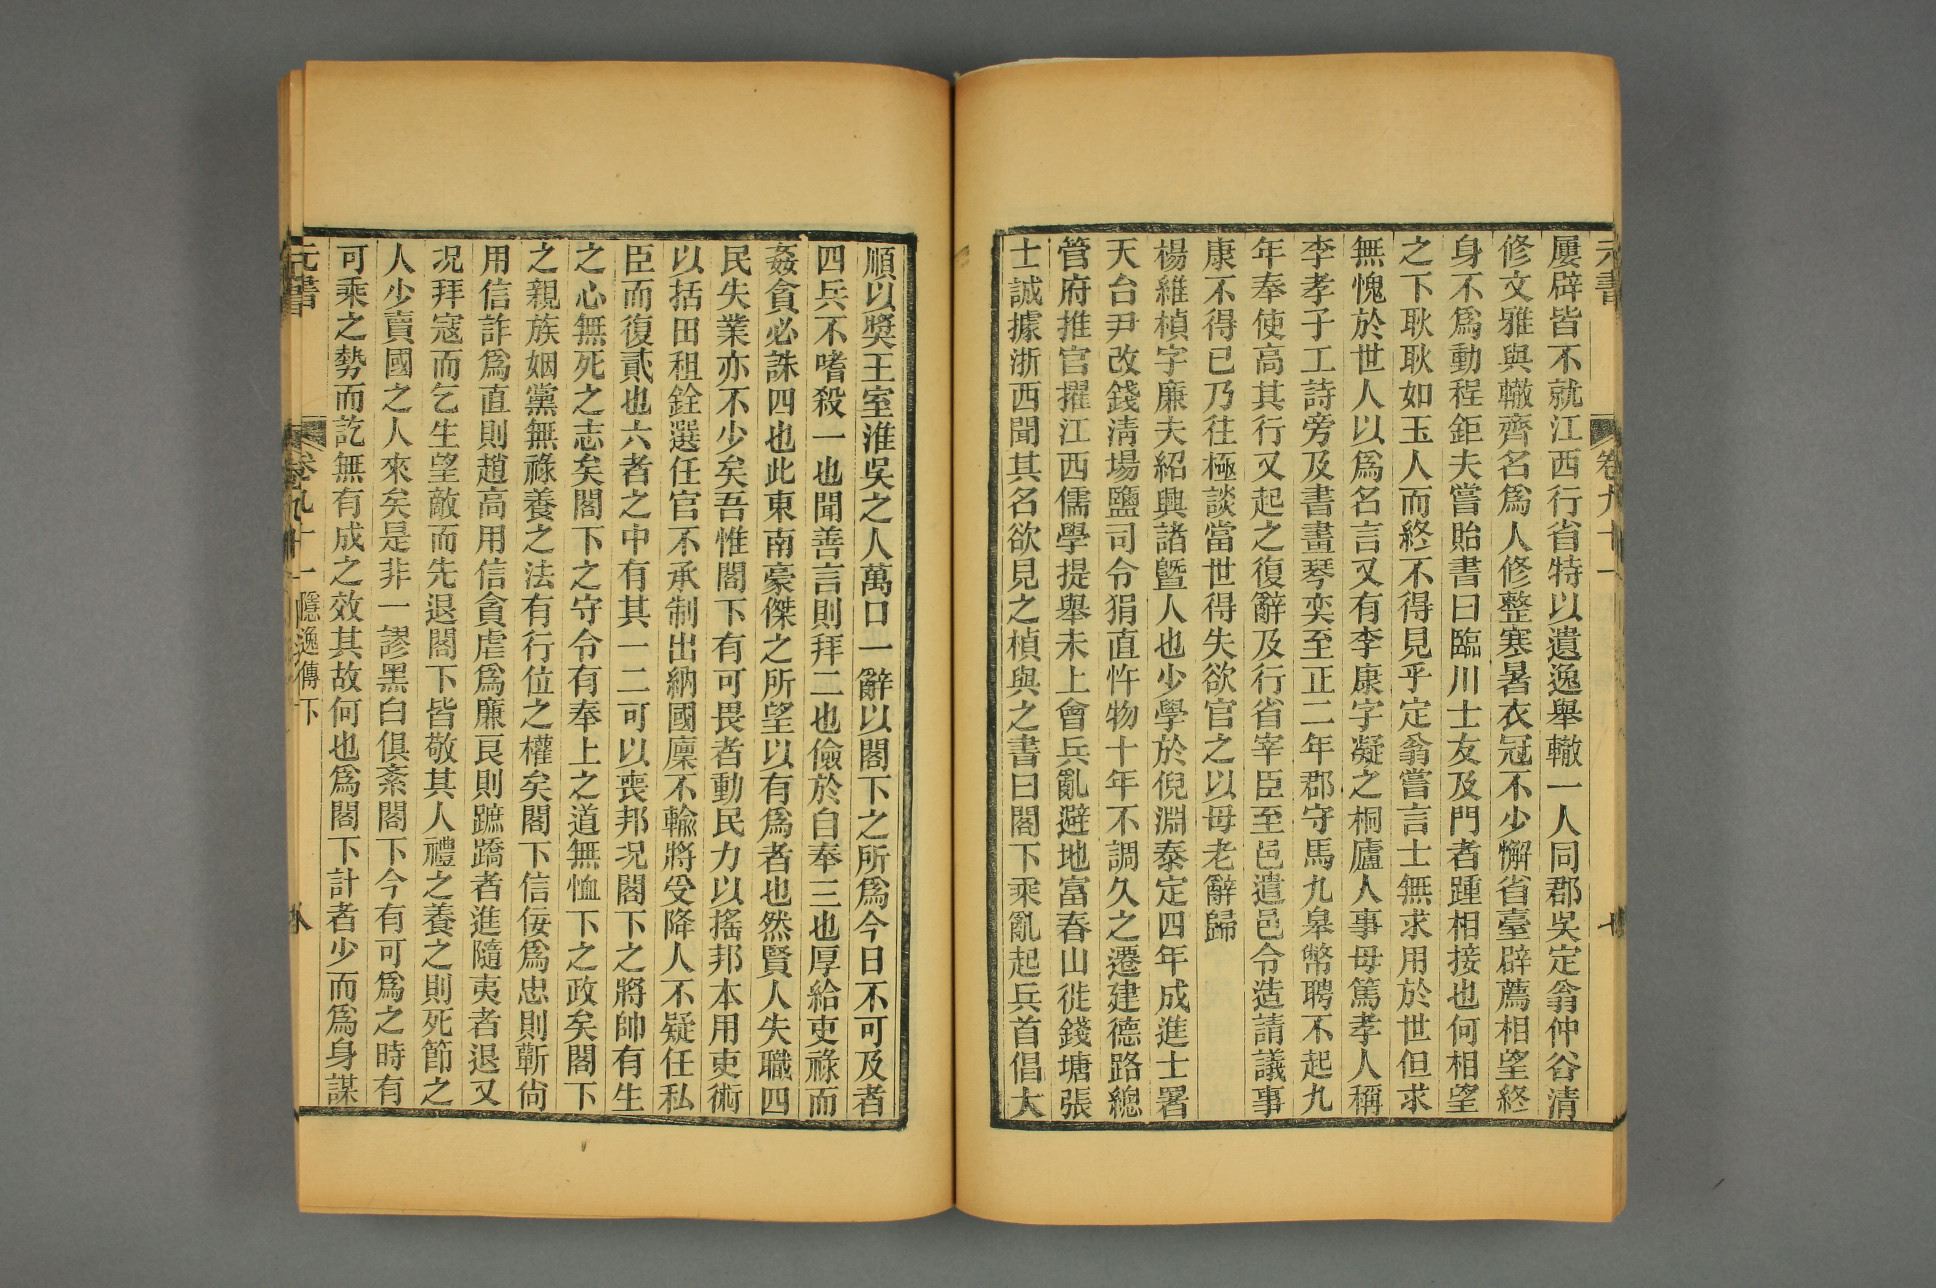 元書 卷九十一 七
屢辟皆不就江西行省特以遺逸舉轍一人同郡吳定翁仲谷清
修文雅與轍齊名爲人修整寒暑衣冠不少懈省臺辟薦相望終
身不爲動程鉅夫嘗貽書曰臨川士友及門者踵相接也何相望
之下耿耿如玉人而終不得見乎定翁嘗言士無求用於世但求
無愧於世人以爲名言又有李康字凝之桐廬人事母篤孝人稱
李孝子工詩旁及書畫琴奕至正二年郡守馬九皋幣聘不起九
年奉使高其行又起之復辭及行省宰臣至邑遣邑令造請議事
康不得已乃往極談當世得失欲官之以母老辭歸
楊維楨字廉夫紹興諸暨人也少學於倪淵泰定四年成進士署
天台尹改錢清場鹽司令狷直忤物十年不調久之遷建德路總
管府推官擢江西儒學提舉未上會兵亂避地富春山徙錢塘張
士誠據浙西聞其名欲見之楨與之書曰閣下乘亂起兵首倡大
順以奬王室淮吳之人萬口一辭以閣下之所爲今日不可及者
四兵不嗜殺一也聞善言則拜二也儉於自奉三也厚給吏祿而
姦貪必誅四也此東南豪傑之所望以有爲者也然賢人失職四
民失業亦不少矣吾惟閣下有可畏者動民力以搖邦本用吏術
以括田租銓選任官不承制出納國廩不輸將受降人不疑任私
臣而復貳也六者之中有其一二可以喪邦况閣下之將帥有生
之心無死之志矣閣下之守令有奉上之道無恤下之政矣閣下
之親族姻黨無祿養之法有行位之權矣閣下信佞爲忠則靳尙
用信詐爲直則趙高用信貪虐爲廉良則蹠蹻者進隨夷者退又
况拜寇而乞生望敵而先退閣下皆敬其人禮之養之則死節之
人少賣國之人來矣是非一謬黑白俱紊閣下今有可爲之時有
可乘之勢而訖無有成之效其故何也爲閣下計者少而爲身謀
元書 卷九十一 隱逸傳下 八